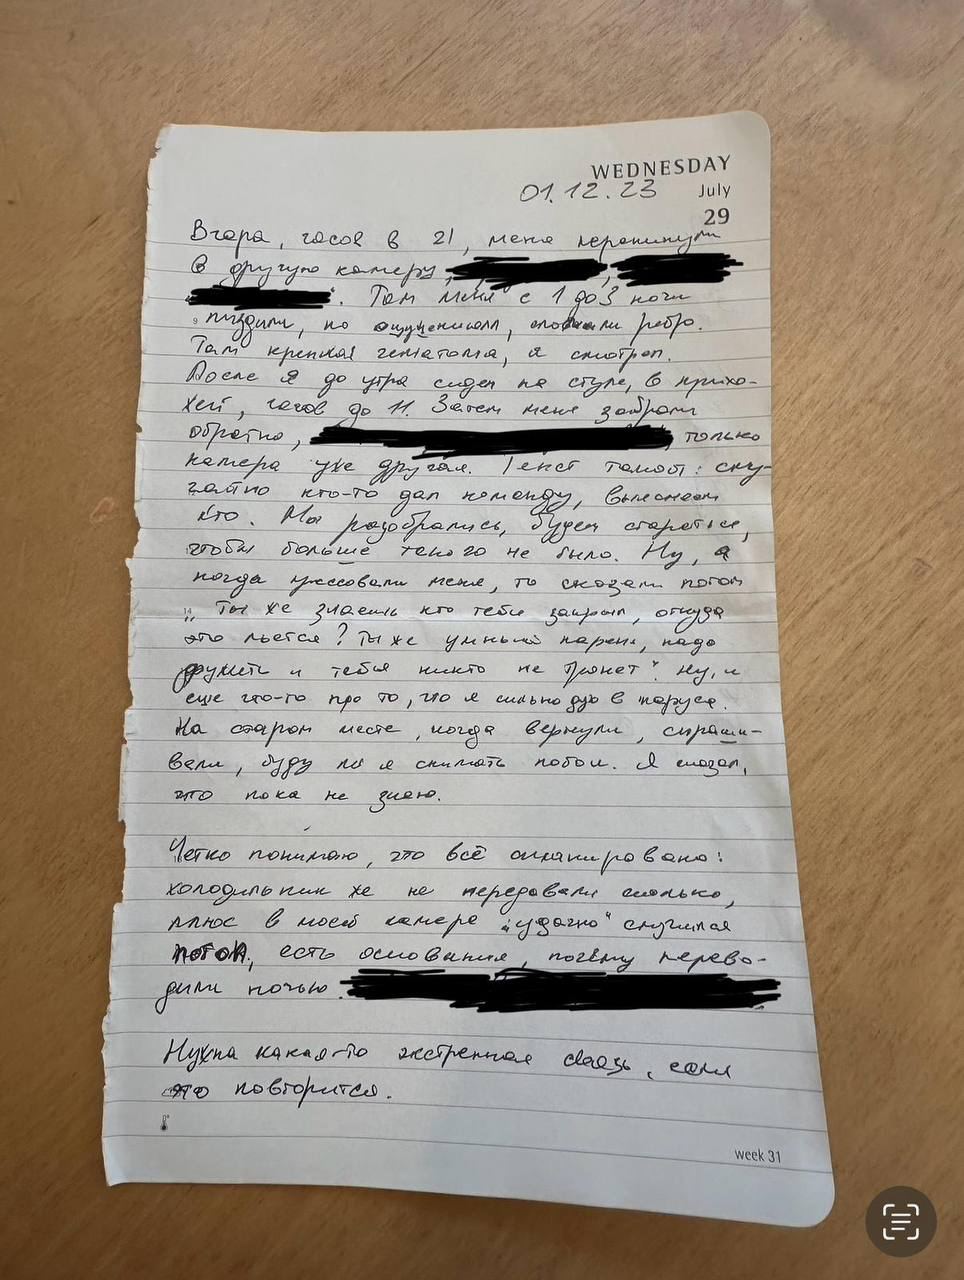 WEDNESDAY
01.12.23 July
29
Вчера, часов в 21, меня перекинули
в другую камеру,
Там меня с 1 до 3 ночи
9 пиздили, по ощущениям, сломали ребро.
Там крепкая гематома, я смотрел.
После я до утра сидел на стуле, в прихо-
жей, часов до 11. Затем меня забрали
обратно, только
камера уже другая. Текст такой: слу-
чайно кто-то дал команду, выясняем
кто. Мы разобрались, будем стараться,
чтобы больше такого не было. Ну, а
когда прессовали меня, то сказали потом
14 „Ты же знаешь кто тебя закрыл, откуда
это льется? Ты же умный парень, надо
дружить и тебя никто не тронет". Ну, и
еще что-то про то, что я сильно дую в паруса.
На старом месте, когда вернули, спраши-
вали, буду ли я снимать побои. Я сказал,
что пока не знаю.
Четко понимаю, что всё спланировано:
холодильник же не передавали сколько,
плюс в моей камере „удачно" случился
потоп, есть основания, почему перево-
дили ночью.
Нужна какая-то экстренная связь, если
это повторится.
week 31